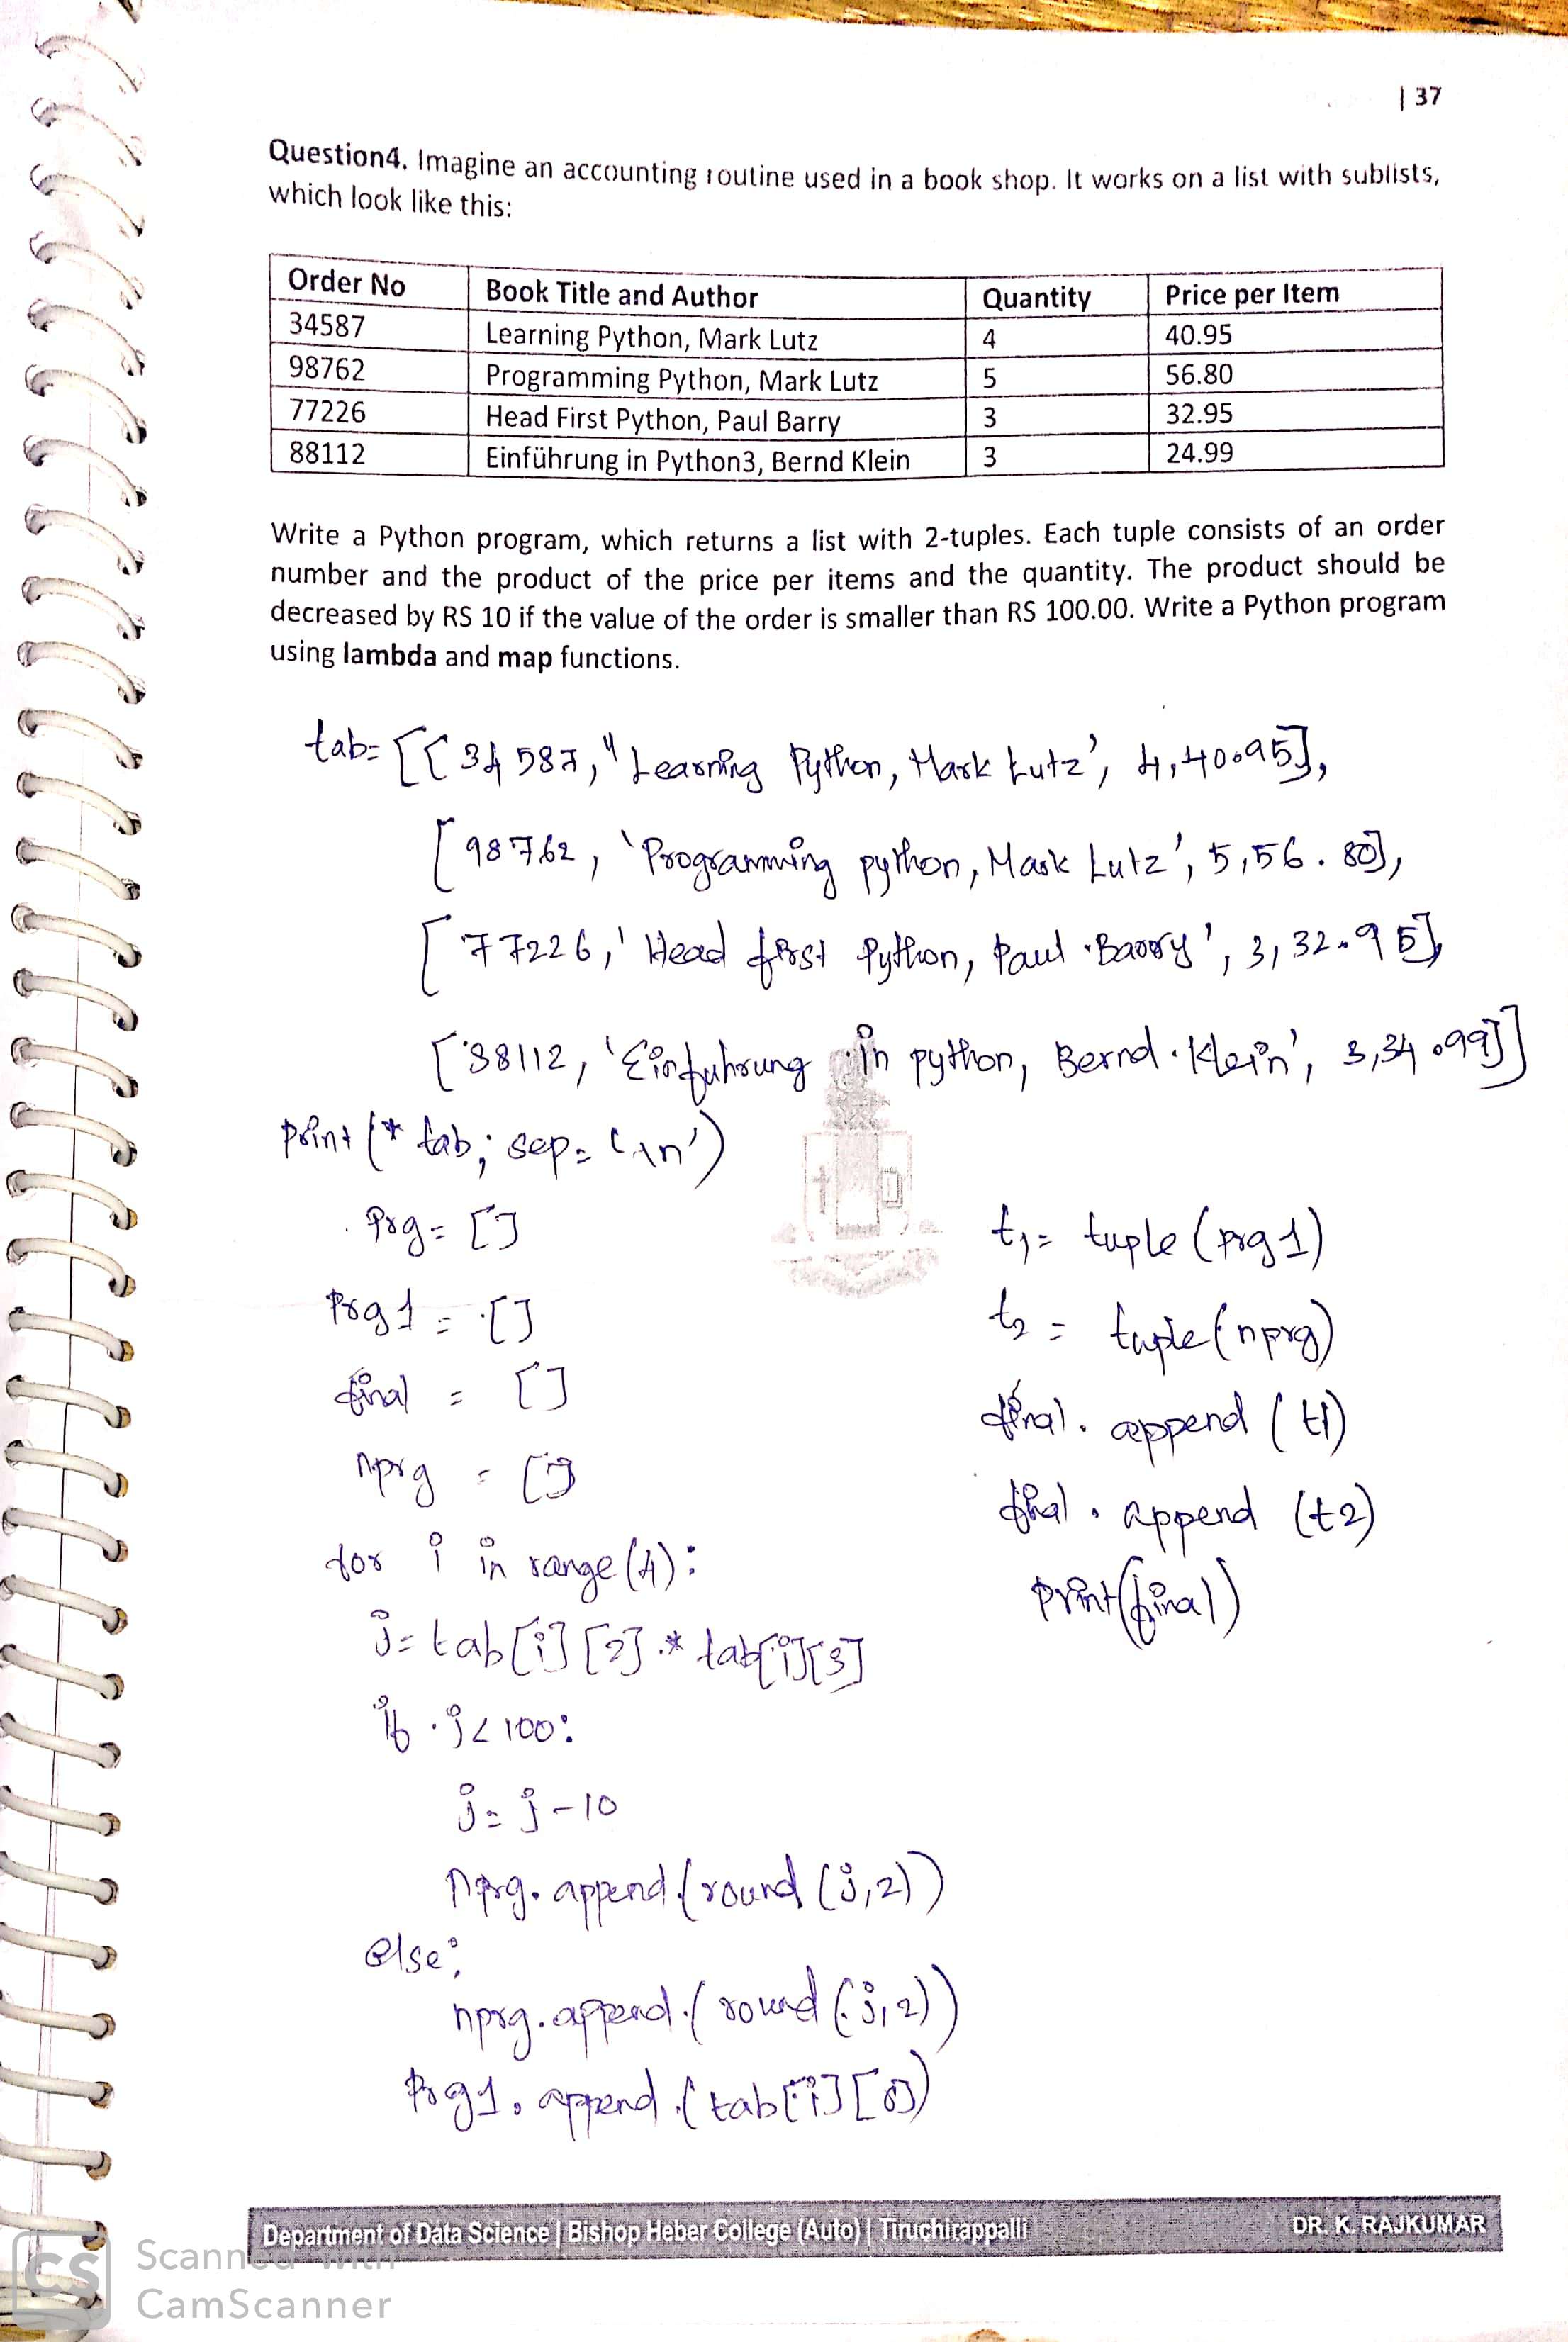 | 37
Question4. Imagine an accounting routine used in a book shop. It works on a list with sublists,
which look like this:
Order No Book Title and Author Quantity Price per Item
34587 Learning Python, Mark Lutz 4 40.95
98762 Programming Python, Mark Lutz 5 56.80
77226 Head First Python, Paul Barry 3 32.95
88112 Einführung in Python3, Bernd Klein 3 24.99
Write a Python program, which returns a list with 2-tuples. Each tuple consists of an order
number and the product of the price per items and the quantity. The product should be
decreased by RS 10 if the value of the order is smaller than RS 100.00. Write a Python program
using lambda and map functions.
tab= [[34587, "Learning Python, Mark Lutz', 4,40.95],
[98762, 'Programming python, Mark Lutz', 5,56.80],
[77226,' Head first Python, Paul Barry', 3,32.95],
[88112, 'Einfuhrung in python, Bernd Klein', 3,34.99]]
print (* tab; sep= '\n')
prg= []
prg1 = []
final = []
nprg = []
for i in range(4):
j= tab[i][2] * tab[i][3]
if j<100:
j=j-10
nprg. append(round (j,2))
else:
nprg. append (round (j,2))
prg1. append (tab[i][0])
t1= tuple (prg1)
t2 = tuple(nprg)
final. append (t1)
final. append (t2)
print(final)
Department of Data Science | Bishop Heber College (Auto) | Tiruchirappalli
DR. K. RAJKUMAR
CS Scanned with
CamScanner